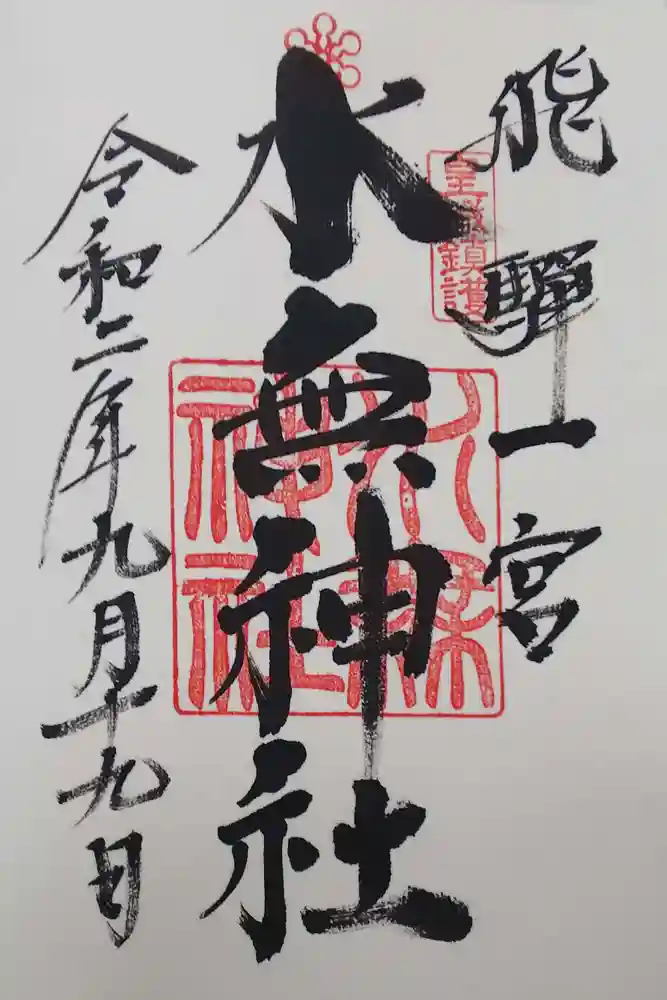 飛驒一宮
皇城鎮護
水無神社
水無神社
令和二年九月十九日